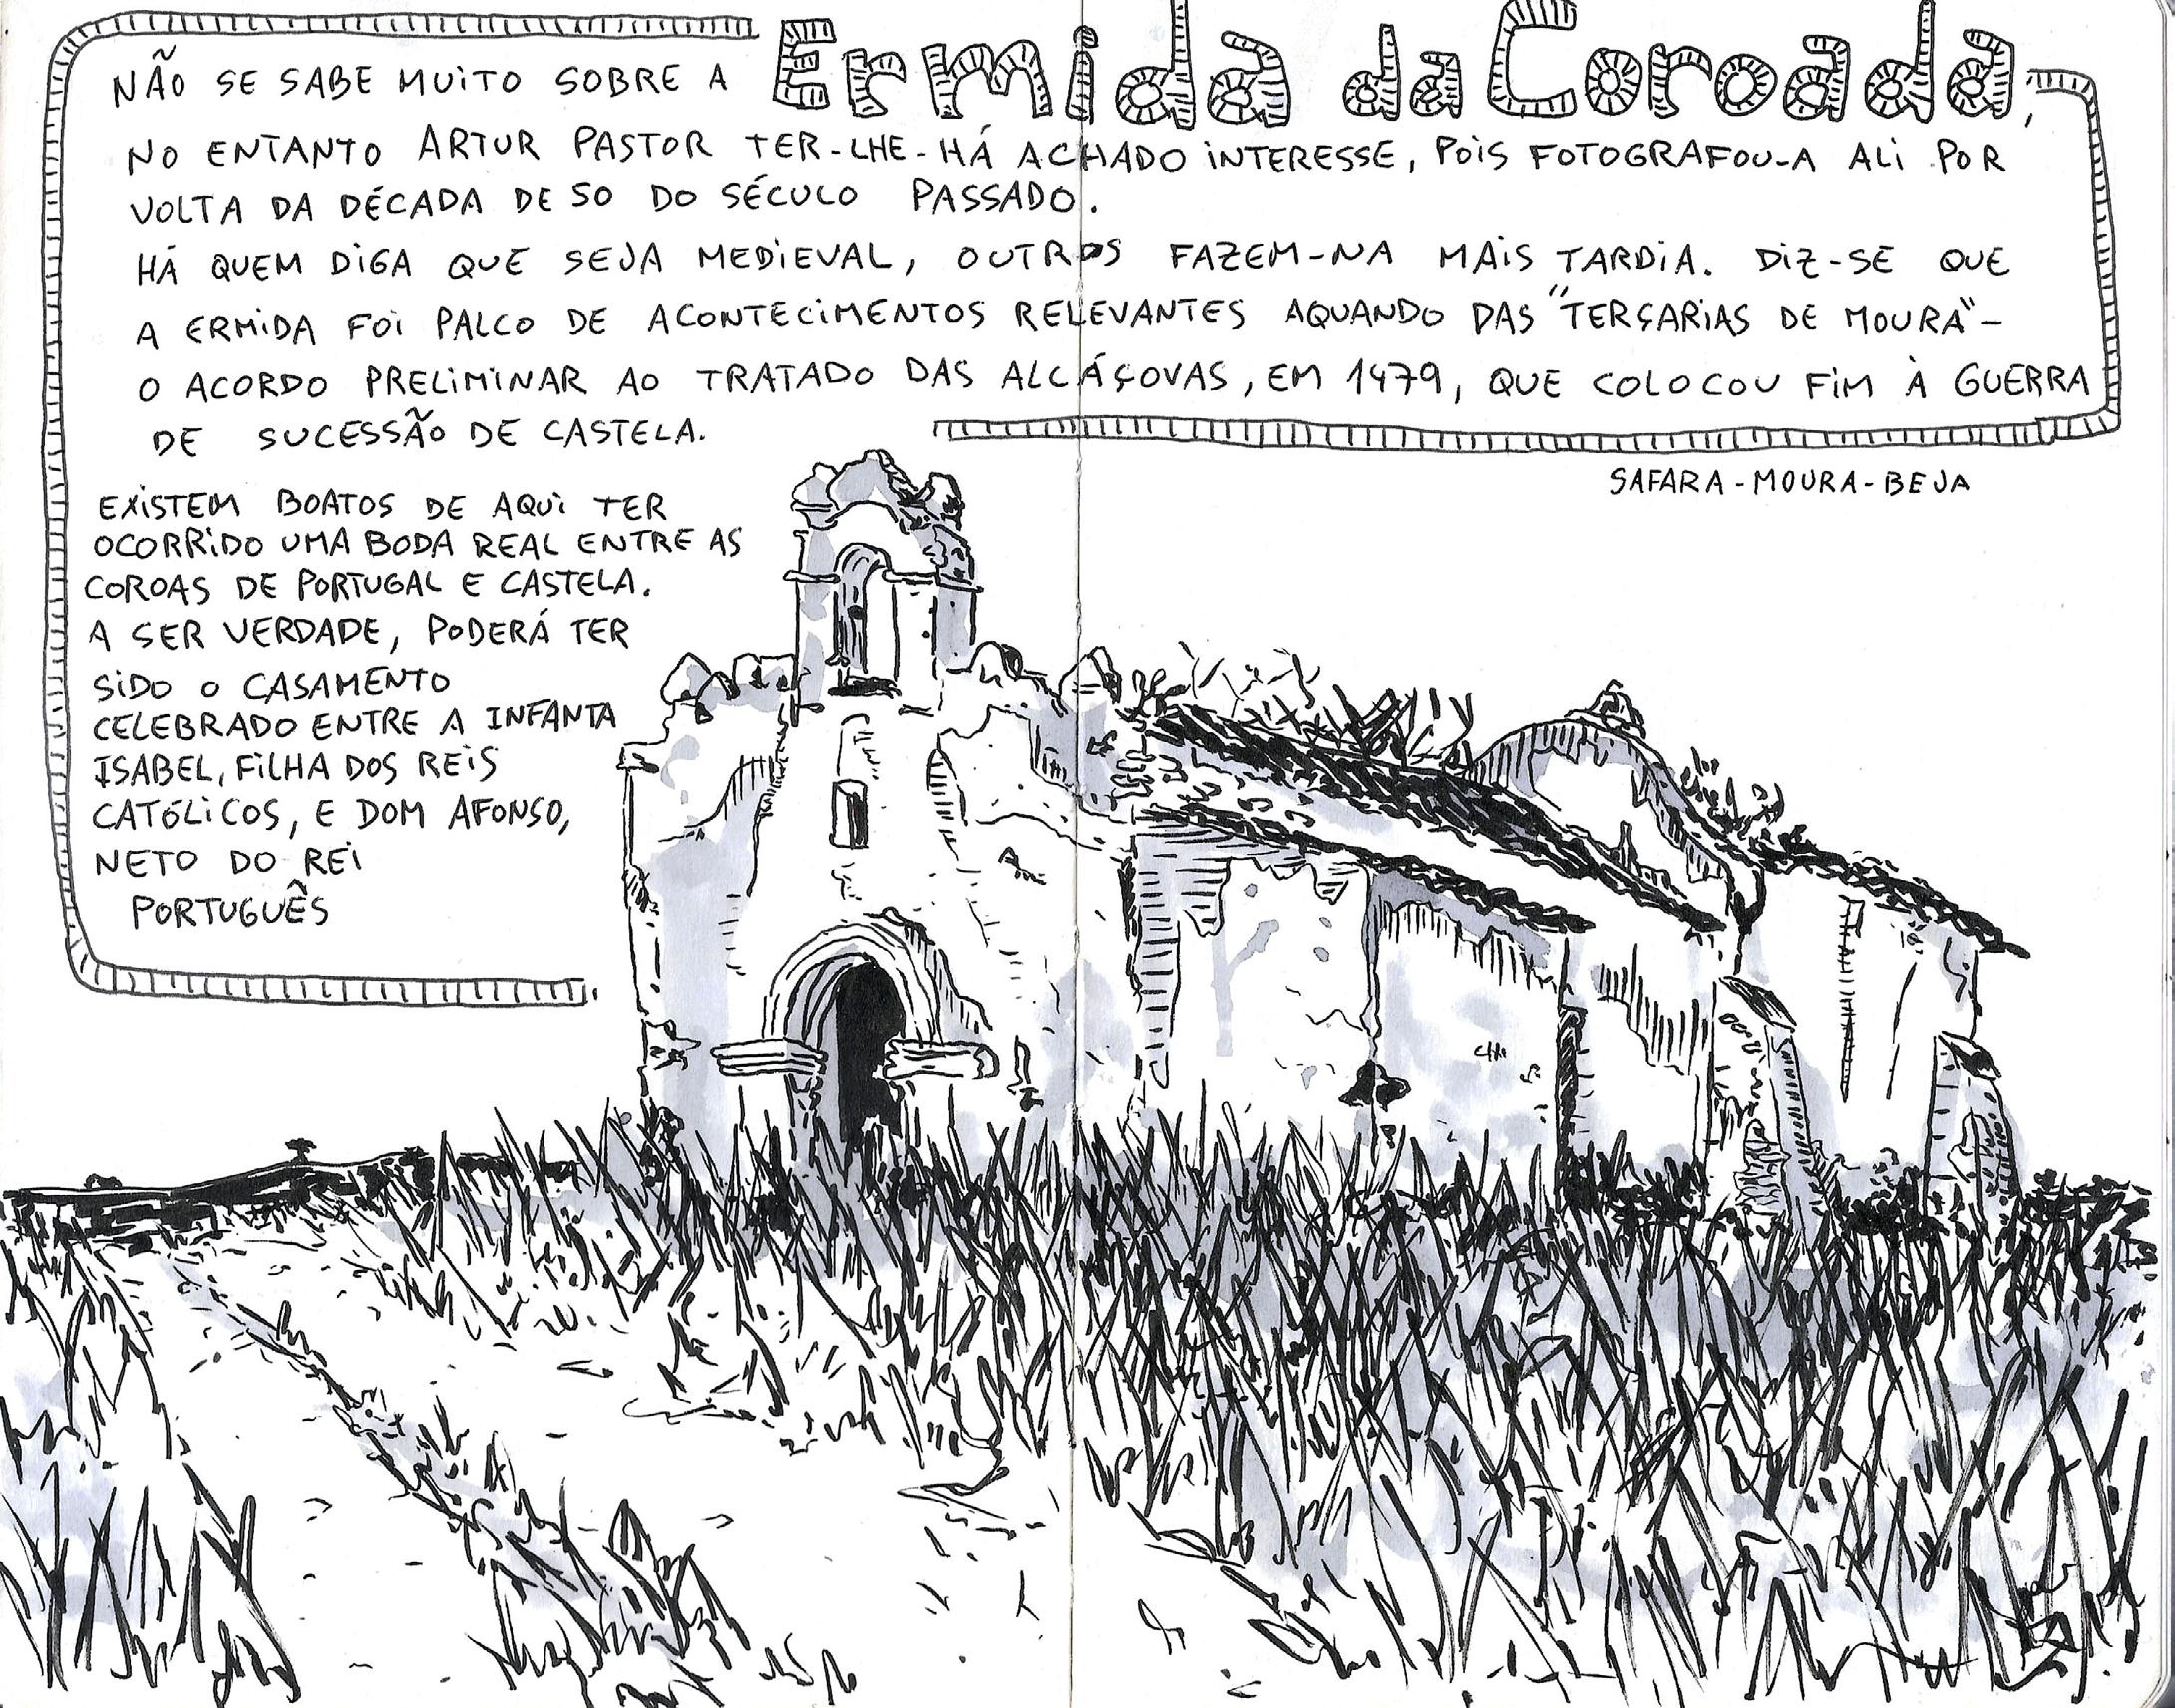 NÃO SE SABE MUITO SOBRE A Ermida da Coroada,
NO ENTANTO ARTUR PASTOR TER-LHE-HÁ ACHADO INTERESSE, POIS FOTOGRAFOU-A ALI POR
VOLTA DA DÉCADA DE 50 DO SÉCULO PASSADO.
HÁ QUEM DIGA QUE SEJA MEDIEVAL, OUTROS FAZEM-NA MAIS TARDIA. DIZ-SE QUE
A ERMIDA FOI PALCO DE ACONTECIMENTOS RELEVANTES AQUANDO DAS "TERÇARIAS DE MOURA" -
O ACORDO PRELIMINAR AO TRATADO DAS ALCÁÇOVAS, EM 1479, QUE COLOCOU FIM À GUERRA
DE SUCESSÃO DE CASTELA.
SAFARA - MOURA - BEJA
EXISTEM BOATOS DE AQUI TER
OCORRIDO UMA BODA REAL ENTRE AS
COROAS DE PORTUGAL E CASTELA.
A SER VERDADE, PODERÁ TER
SIDO O CASAMENTO
CELEBRADO ENTRE A INFANTA
ISABEL, FILHA DOS REIS
CATÓLICOS, E DOM AFONSO,
NETO DO REI
PORTUGUÊS